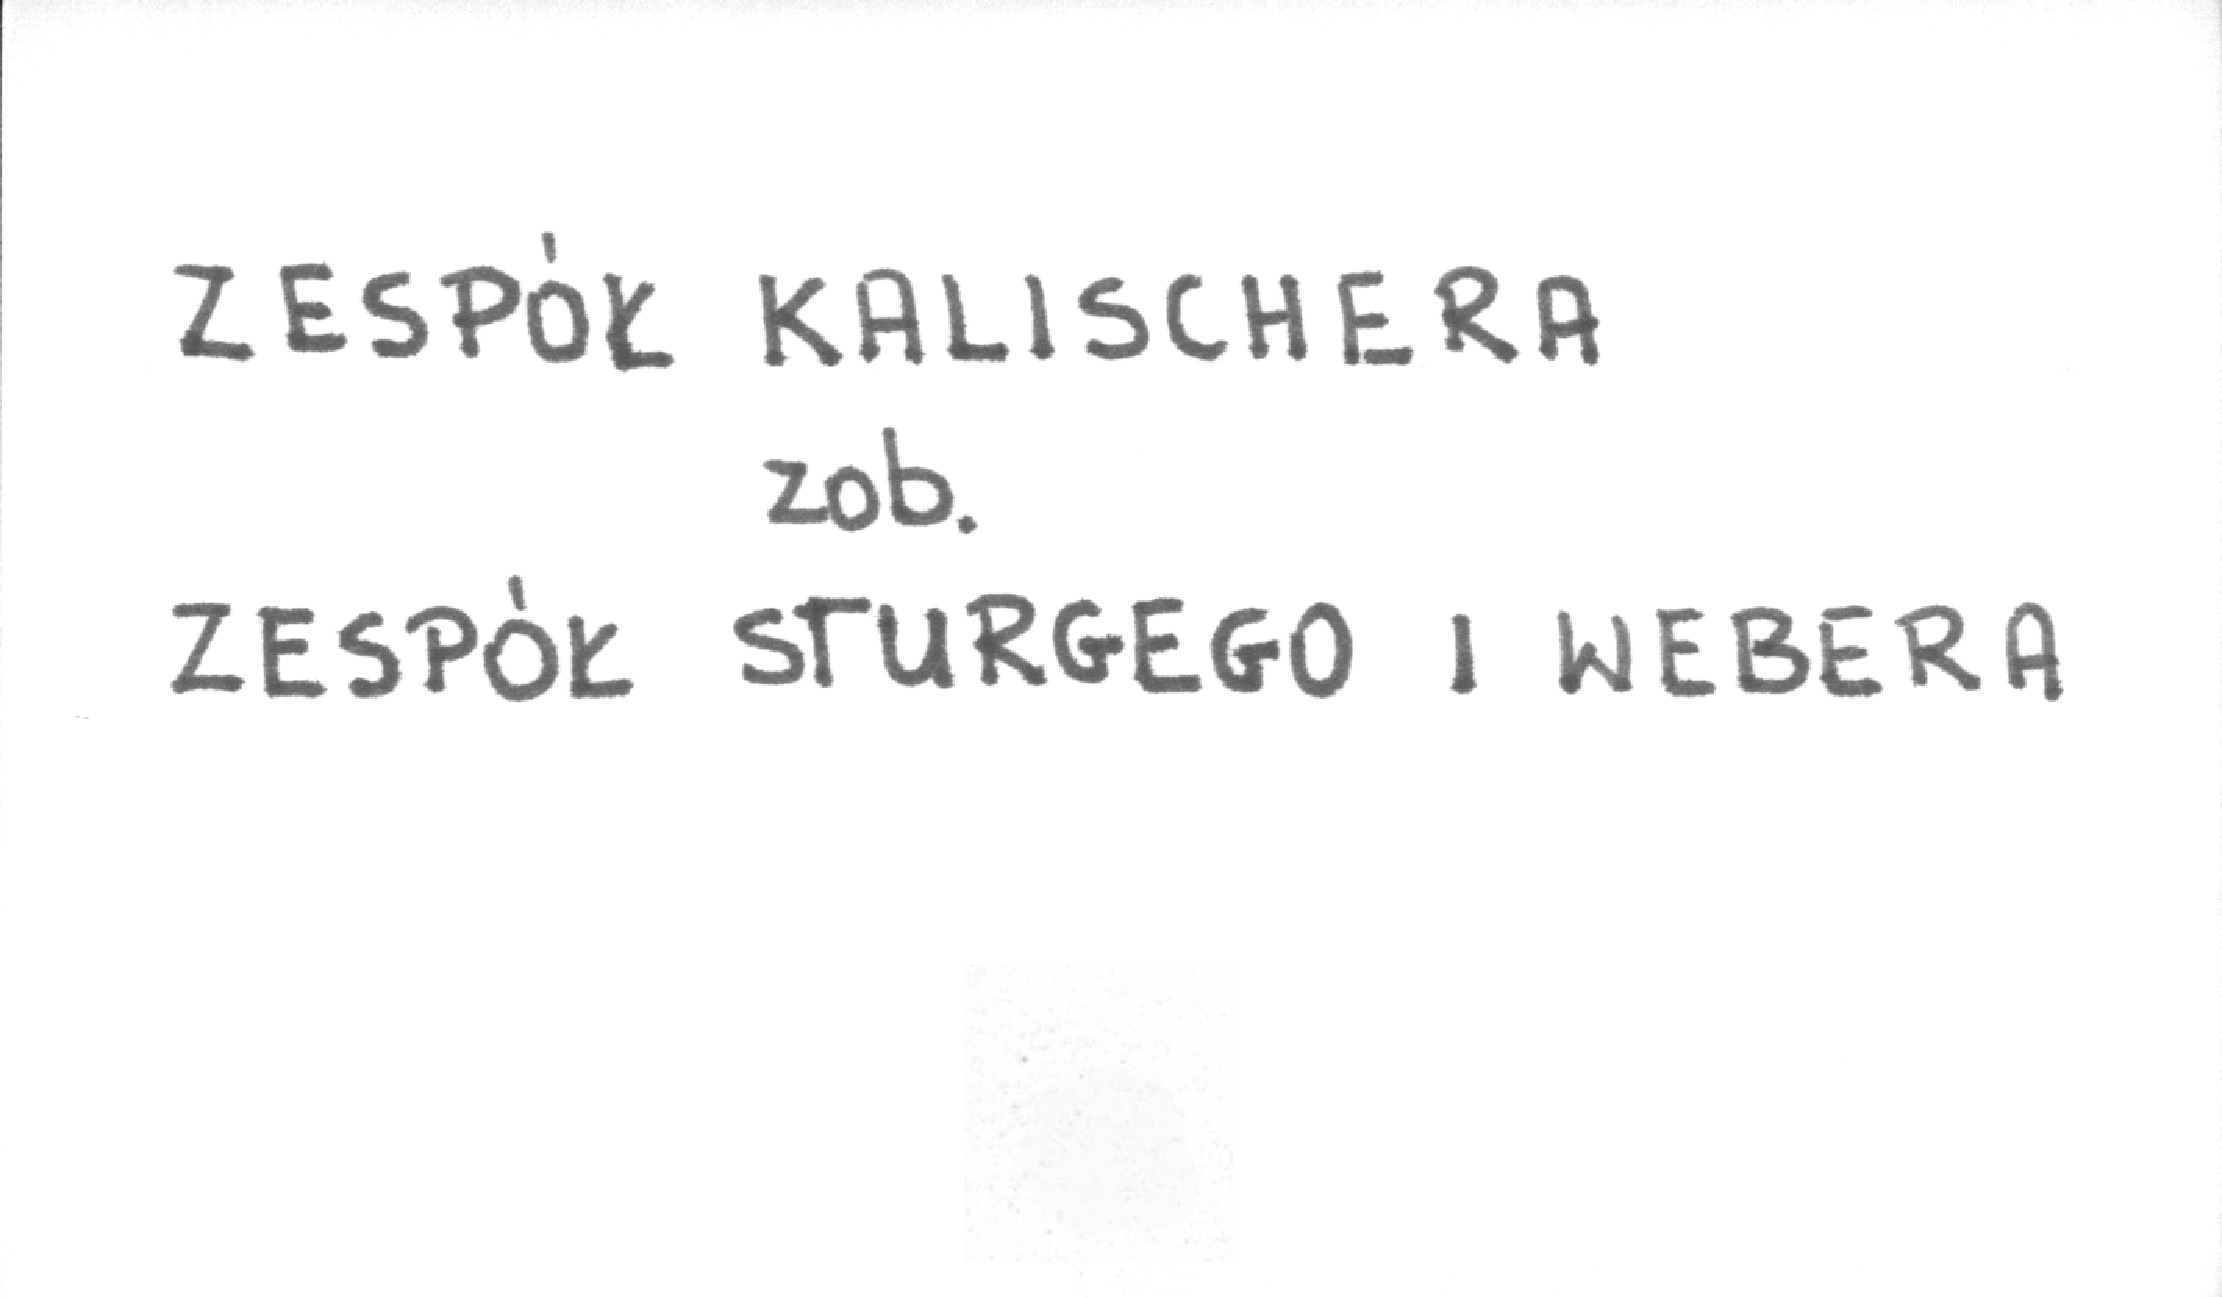 ZESPÓŁ KALISCHERA
zob.
ZESPÓŁ STURGEGO I WEBERA